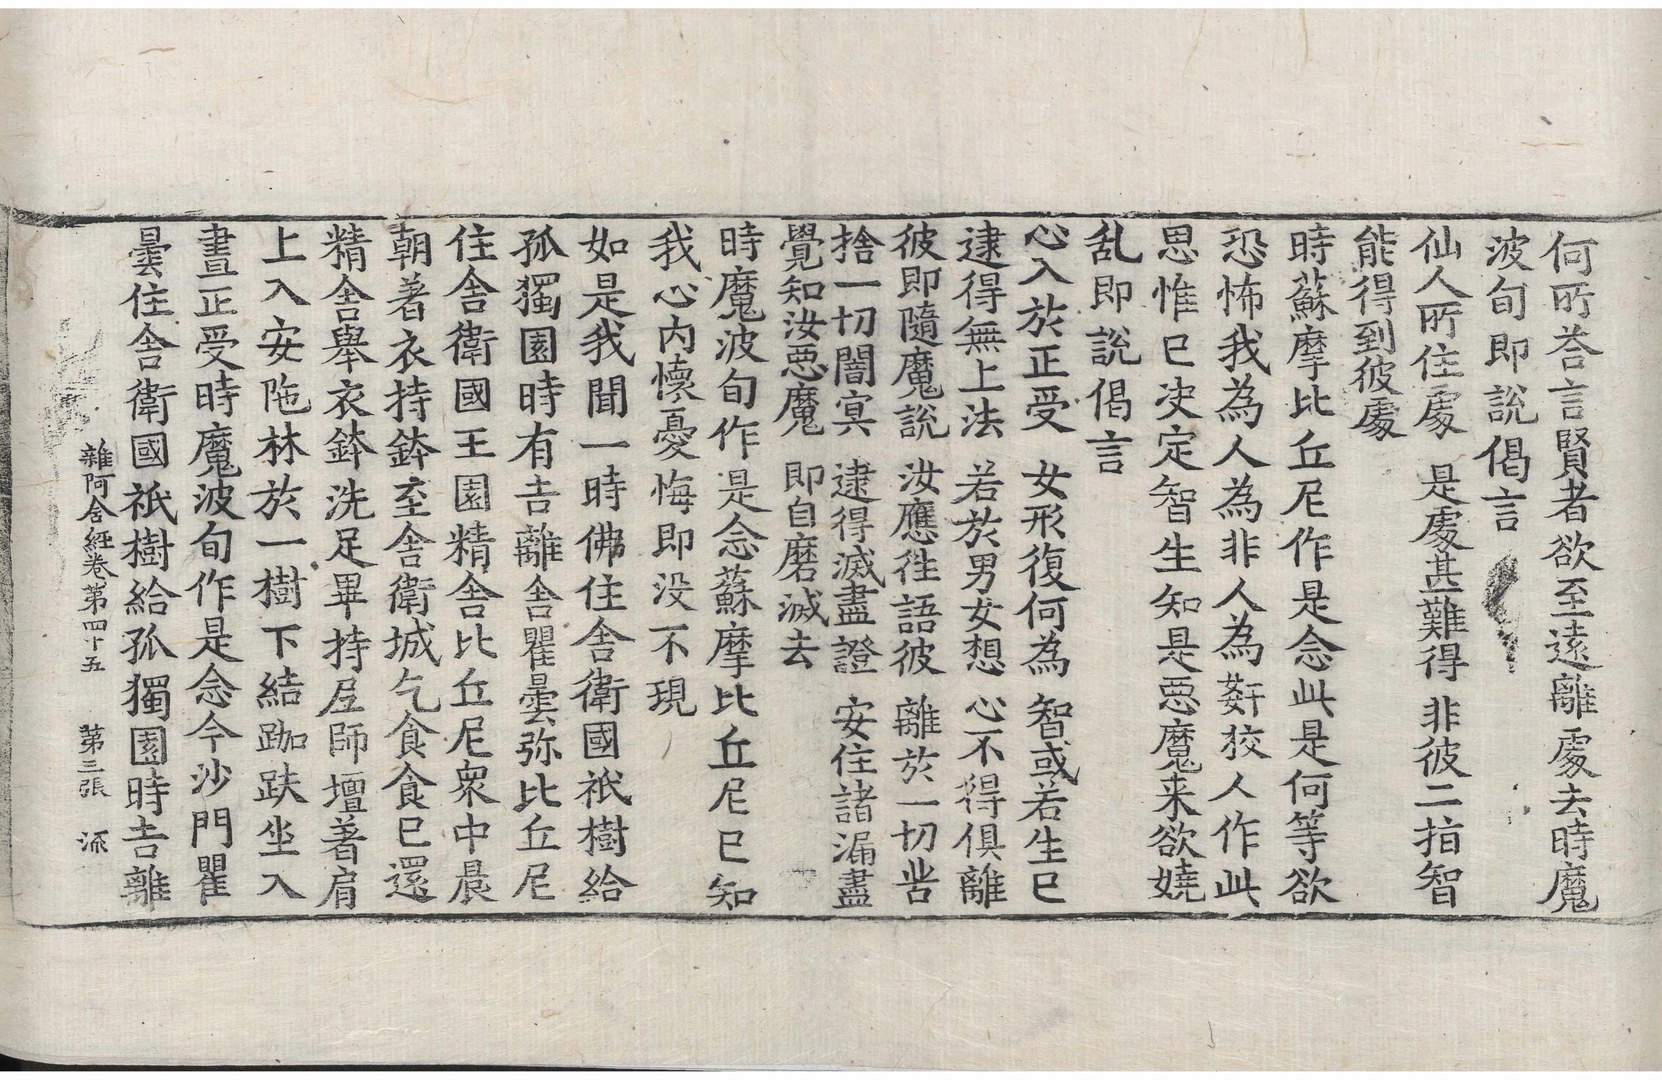 何所荅言賢者欲至遠離處去時魔
波旬即說偈言
仙人所住處　是處甚難得　非彼二指智
能得到彼處
時蘇摩比丘尼作是念此是何等欲
恐怖我為人為非人為姧狡人作此
思惟已决定智生知是惡魔来欲嬈
乱即說偈言
心入於正受　女形復何為　智或若生已
逮得無上法　若於男女想　心不得俱離
彼即隨魔說　汝應徃語彼　離於一切苦
捨一切闇冥　逮得滅盡證　安住諸漏盡
覺知汝惡魔　即自磨滅去
時魔波旬作是念蘇摩比丘尼已知
我心內懷憂悔即没不現
如是我聞一時佛住舍衛國祇樹給
孤獨園時有吉離舍瞿曇弥比丘尼
住舍衛國王園精舍比丘尼衆中晨
朝著衣持鉢至舍衛城乞食食已還
精舍舉衣鉢洗足畢持尼師壇著肩
上入安陁林於一樹下結跏趺坐入
晝正受時魔波旬作是念今沙門瞿
曇住舍衛國祇樹給孤獨園時吉離
雜阿含經卷第四十五　第三張　㳅